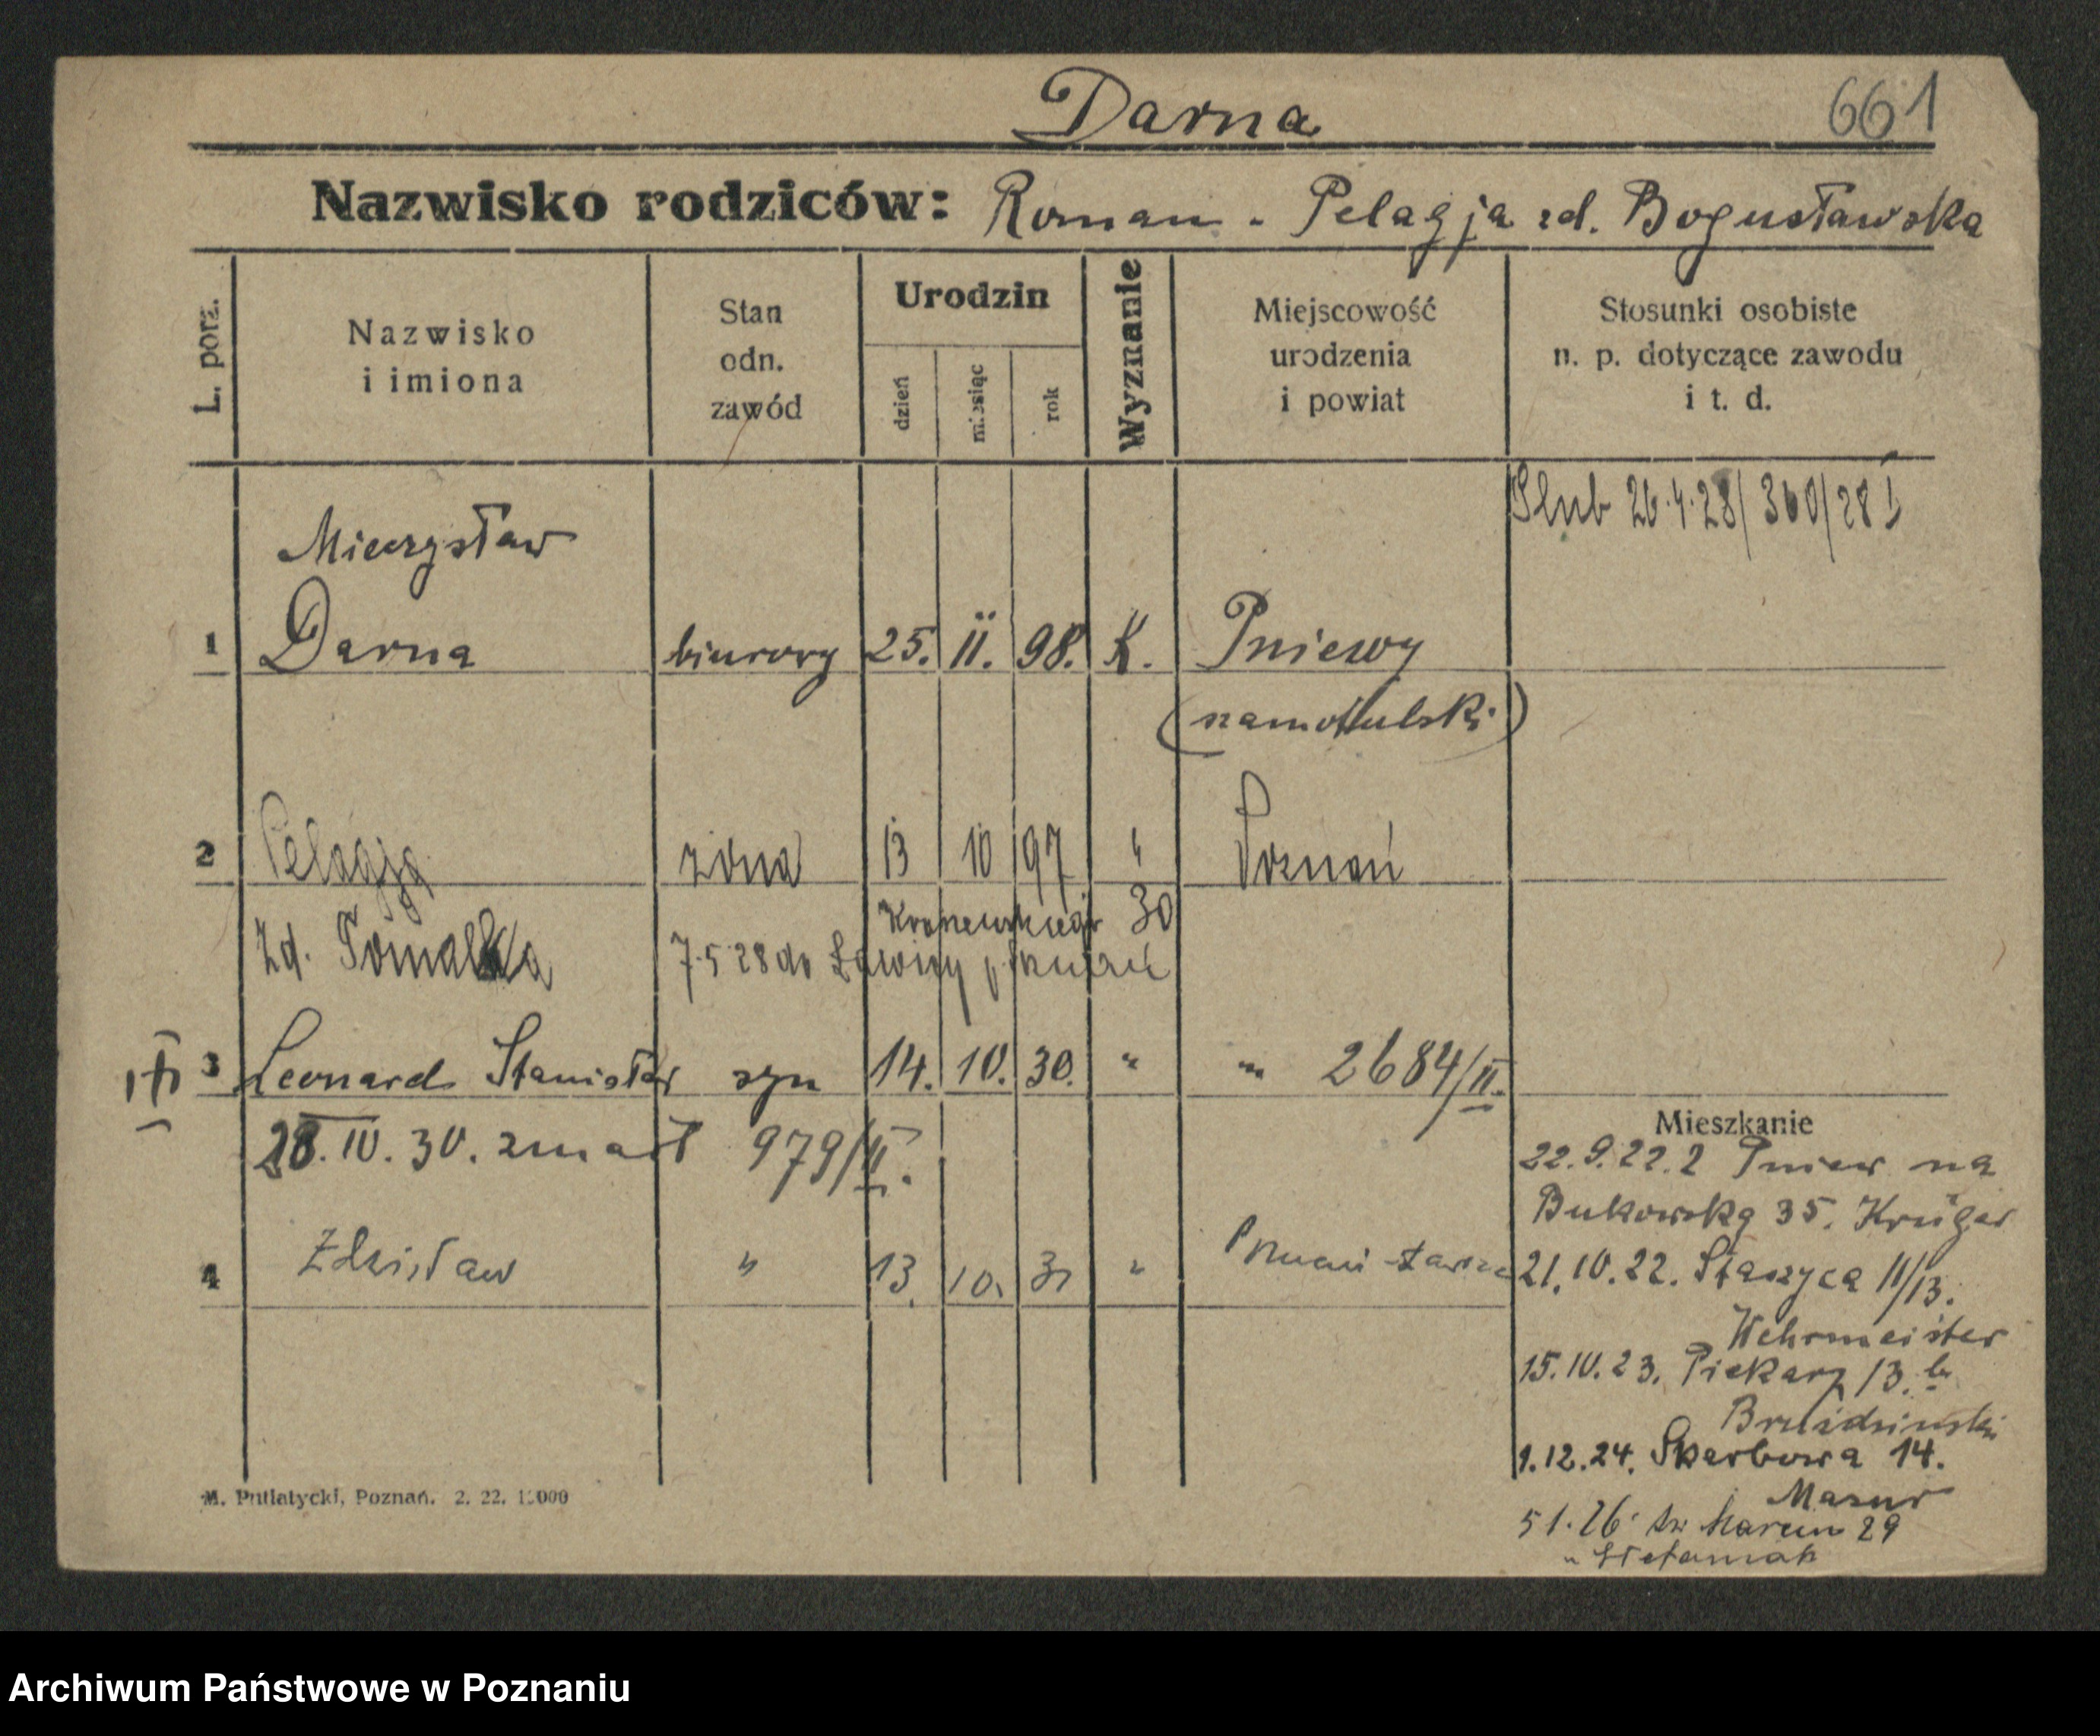 Darna
661
Nazwisko rodziców: Roman - Pelagja zd. Bogusławska
L. porz.
Nazwisko
i imiona
Stan
odn.
zawód
Urodzin
dzień
miesiąc
rok
Wyznanie
Miejscowość
urodzenia
i powiat
Stosunki osobiste
n. p. dotyczące zawodu
i t. d.
Ślub 26.4.28/360/28 I
Mieczysław
1 Darna biurowy 25. II. 98. K. Pniewy
(szamotulski)
2 Pelagja żona 13 10 97 " Poznań
Kraszewskiego 30
zd. Tomalka 7.5 28 do Ławicy p Poznań
3 Leonard Stanisław syn 14. 10. 30. " " 2684/II.
28. IV. 30. zmarł 979/II.
4 Zdzisław " 13. 10. 31 "
Mieszkanie
22.9.22. z Pniew na
Bukowską 35. Krüger
21.10.22. Staszyca 11/13.
Wehrmeister
15.10.23. Piekary 13. b
1.12.24. Skarbowa 14.
Mazur
5 1. 26 św Marcin 29
" Stefaniak
M. Putiatycki, Poznań. 2. 22.
Archiwum Państwowe w Poznaniu